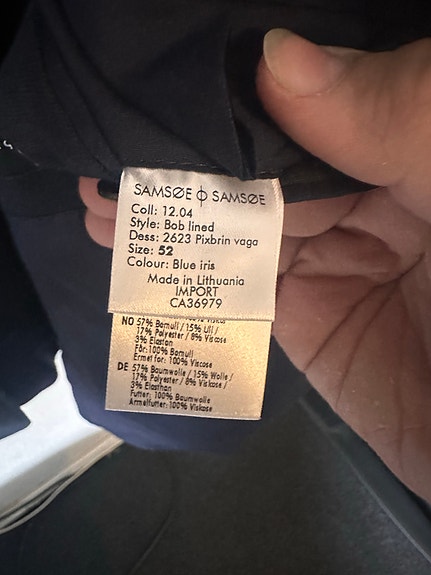 SAMSØE φ SAMSØE
Coll: 12.04
Style: Bob lined
Dess: 2623 Pixbrin vaga
Size: 52
Colour: Blue iris
Made in Lithuania
IMPORT
CA36979
NO 57% Bomull / 15% Ull /
17% Polyester / 8% Viskose /
3% Elastan
Fôr: 100% Bomull
Ermet for: 100% Viscose
DE 57% Baumwolle / 15% Wolle /
17% Polyester / 8% Viskose /
3% Elasthan
Futter: 100% Baumwolle
Armelfutter: 100% Viskose